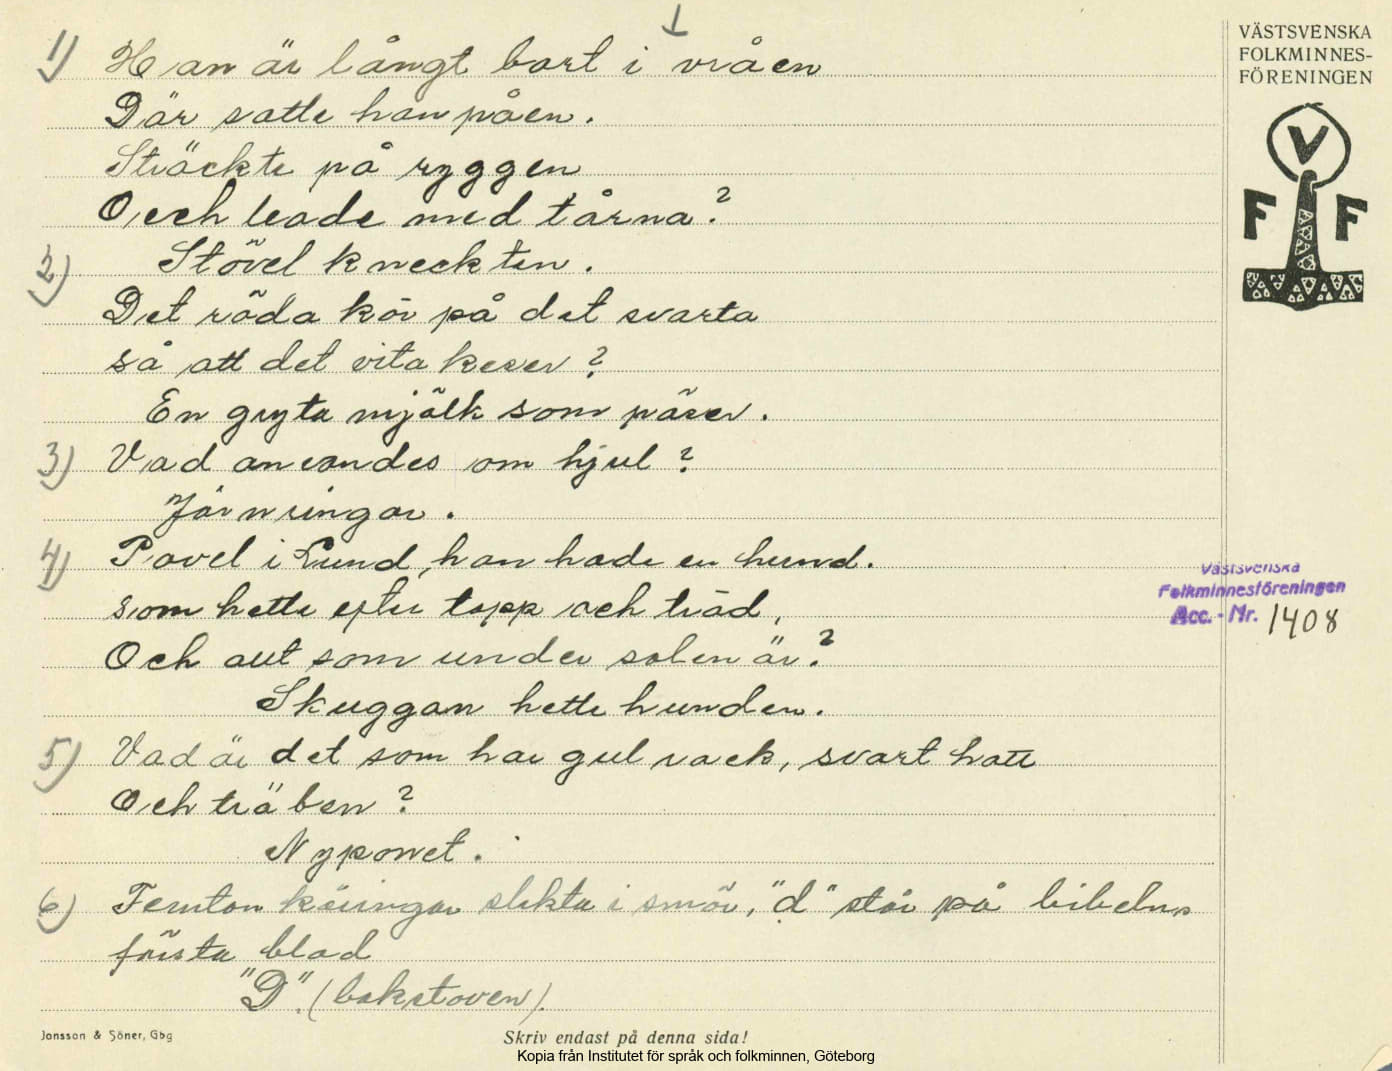 1) Han är långt bort i vråen
Där satte han påen.
Sträckte på ryggen
Och leade med tårna?
Stövel kneckten.
2) Det röda kör på det svarta
så att det vita keser?
En gryta mjölk som päser.
3) Vad anvandes om hjul?
Järnringar.
4) Pavel i Lund, han hade en hund.
som hette efter topp och träd,
Och aut som under solen är?
Skuggan hette hunden.
5) Vad är det som har gul rack, svart hatt
Och träben?
Nyponet.
6) Femton käringar slekta i smör, "d" står på bibelns
första blad
"D". (bokstaven).
VÄSTSVENSKA
FOLKMINNES-
FÖRENINGEN
V
F F
Västsvenska
Folkminnesföreningen
Acc. - Nr. 1408
Jonsson & Söner, Gbg
Skriv endast på denna sida!
Kopia från Institutet för språk och folkminnen, Göteborg